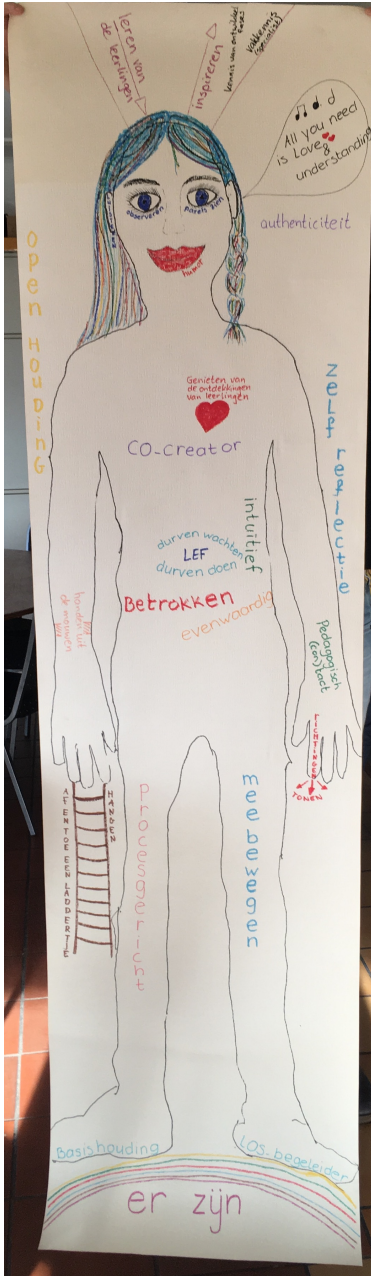 leren van
de leerlingen
inspireren
kennis van ontwikkel
fases
vakkennis
(specialist)
All you need
is Love
&
understanding
observeren
parels zien
humor
authenticiteit
open HouDinG
Genieten van
de ontdekkingen
van leerlingen
zelf reflectie
CO-Creator
intuïtief
durven wachten
LEF
durven doen
Betrokken
evenwaardig
handen uit
de mouwen
Pedagogisch
(con)tact
RICHTINGEN
TONEN
AF EN TOE EEN LADDERTJE
HANGEN
procesgericht
meebewegen
Basishouding
LOS-begeleider
er zijn